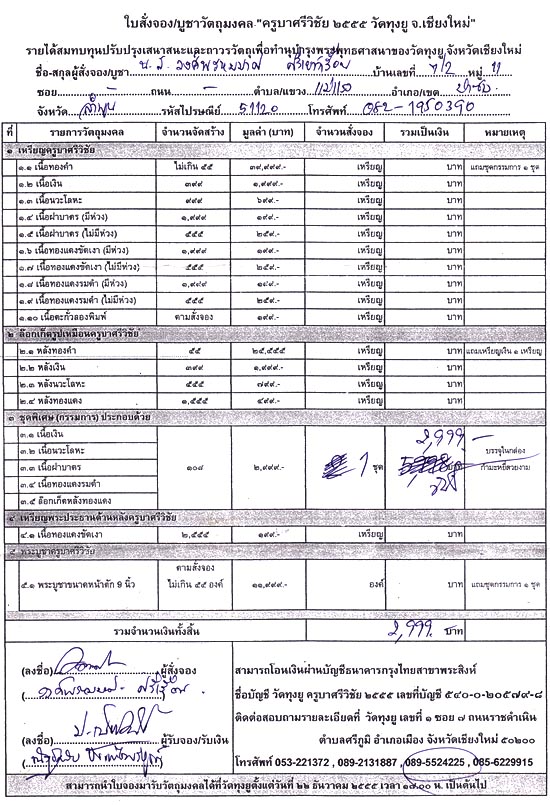 ใบสั่งจอง/บูชาวัตถุมงคล "ครูบาศรีวิชัย ๒๕๕๕ วัดทุงยู จ.เชียงใหม่"
รายได้สมทบทุนปรับปรุงเสนาสนะและถาวรวัตถุเพื่อทำนุบำรุงพระพุทธศาสนาของวัดทุงยู จังหวัดเชียงใหม่
ชื่อ-สกุลผู้สั่งจอง/บูชา น.ส. บ้านเลขที่ 7/2 หมู่ 11
ซอย - ถนน - ตำบล/แขวง แม่แรง อำเภอ/เขต ป่าซาง
จังหวัด ลำพูน รหัสไปรษณีย์ 51120 โทรศัพท์ 082-1950390
ที่ รายการวัตถุมงคล จำนวนจัดสร้าง มูลค่า (บาท) จำนวนสั่งจอง รวมเป็นเงิน หมายเหตุ
๑ เหรียญครูบาศรีวิชัย
๑.๑ เนื้อทองคำ ไม่เกิน ๕๕ ๓๙,๙๙๙.- เหรียญ บาท แถมชุดกรรมการ ๑ ชุด
๑.๒ เนื้อเงิน ๓๙๙ ๑,๙๙๙.- เหรียญ บาท
๑.๓ เนื้อนวะโลหะ ๙๙๙ ๖๙๙.- เหรียญ บาท
๑.๔ เนื้อฝาบาตร (มีห่วง) ๑,๙๙๙ ๑๙๙.- เหรียญ บาท
๑.๕ เนื้อฝาบาตร (ไม่มีห่วง) ๕๕๕ ๒๕๙.- เหรียญ บาท
๑.๖ เนื้อทองแดงขัดเงา (มีห่วง) ๑,๙๙๙ ๑๙๙.- เหรียญ บาท
๑.๗ เนื้อทองแดงขัดเงา (ไม่มีห่วง) ๕๕๕ ๒๕๙.- เหรียญ บาท
๑.๘ เนื้อทองแดงรมดำ (มีห่วง) ๑,๙๙๙ ๑๙๙.- เหรียญ บาท
๑.๙ เนื้อทองแดงรมดำ (ไม่มีห่วง) ๕๕๕ ๒๕๙.- เหรียญ บาท
๑.๑๐ เนื้อตะกั่วลองพิมพ์ ตามสั่งจอง ๑๙๙.- เหรียญ บาท
๒ ล๊อกเก็ตรูปเหมือนครูบาศรีวิชัย
๒.๑ หลังทองคำ ๕๕ ๒๕,๕๕๕.- เหรียญ บาท แถมเหรียญเงิน ๑ เหรียญ
๒.๒ หลังเงิน ๓๙๙ ๑,๙๙๙.- เหรียญ บาท
๒.๓ หลังนวะโลหะ ๕๕๕ ๗๙๙.- เหรียญ บาท
๒.๔ หลังทองแดง ๑,๕๕๕ ๔๙๙.- เหรียญ บาท
๓ ชุดพิเศษ (กรรมการ) ประกอบด้วย
๓.๑ เนื้อเงิน 2,999 -
๓.๒ เนื้อนวะโลหะ บรรจุในกล่อง
๓.๓ เนื้อฝาบาตร ๑๐๘ ๒,๙๙๙.- 1 ชุด บาท กำมะหยี่สวยงาม
๓.๔ เนื้อทองแดงรมดำ
๓.๕ ล๊อกเก็ตหลังทองแดง
๔ เหรียญพระประธานด้านหลังครูบาศรีวิชัย
๔.๑ เนื้อทองแดงขัดเงา ๒,๕๕๕ ๑๙๙.- เหรียญ บาท
๕ พระบูชาครูบาศรีวิชัย
๕.๑ พระบูชาขนาดหน้าตัก 9 นิ้ว ตามสั่งจอง ไม่เกิน ๕๕ องค์ ๑๑,๙๙๙.- องค์ บาท แถมชุดกรรมการ ๑ ชุด
รวมจำนวนเงินทั้งสิ้น 2,999. บาท
(ลงชื่อ) ผู้สั่งจอง
สามารถโอนเงินผ่านบัญชีธนาคารกรุงไทยสาขาพระสิงห์
ชื่อบัญชี วัดทุงยู ครูบาศรีวิชัย ๒๕๕๕ เลขที่บัญชี ๕๔๐-๐-๒๐๕๗๙-๘
ติดต่อสอบถามรายละเอียดที่ วัดทุงยู เลขที่ ๑ ซอย ๗ ถนนราชดำเนิน
(ลงชื่อ) ผู้รับจอง/รับเงิน
ตำบลศรีภูมิ อำเภอเมือง จังหวัดเชียงใหม่ ๕๐๒๐๐
โทรศัพท์ 053-221372 , 089-2131887 , 089-5524225 , 085-6229915
สามารถนำใบจองมารับวัตถุมงคลได้ที่วัดทุงยูตั้งแต่วันที่ ๒๒ ธันวาคม ๒๕๕๕ เวลา ๑๙.๐๐ น. เป็นต้นไป